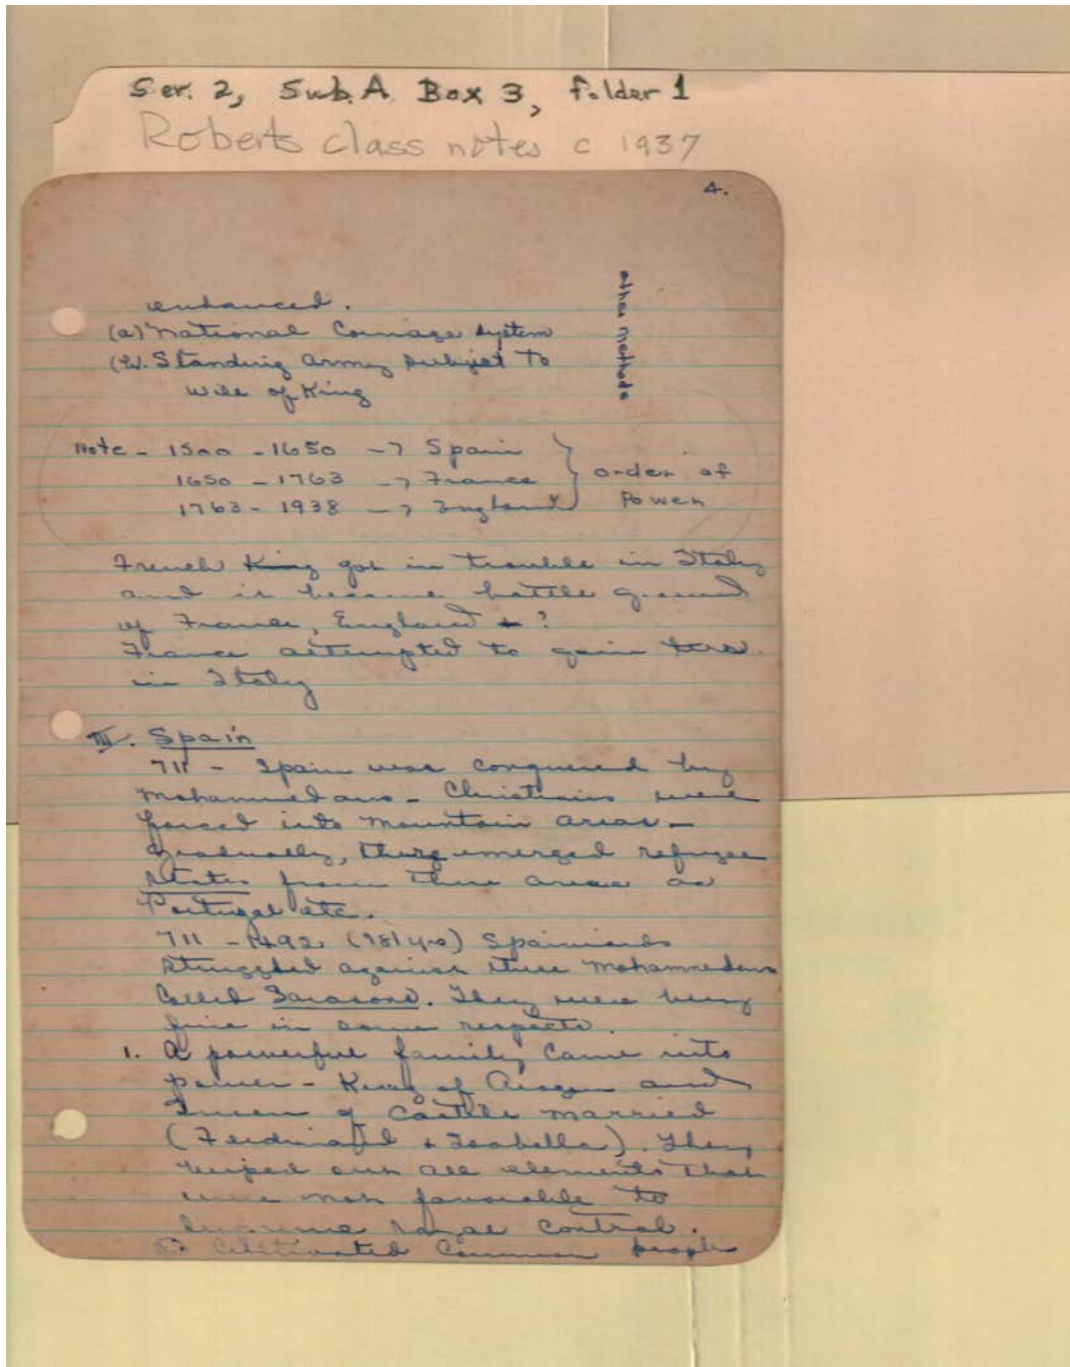 Ser. 2, Sub. A Box 3, folder 1
Roberts class notes c 1937
4.
other methods
enhanced.
(a) National Coinage System
(b). Standing Army subject to
will of King
Note - 1500 - 1650 -> Spain
1650 - 1763 -> France
1763 - 1938 -> England
order of
Power
French King got in trouble in Italy
and it became battle ground
of France, England + ?
France attempted to gain
in Italy
III. Spain
711 - Spain was conquered by
Mohammedans - Christians were
forced into mountain areas -
Gradually, there emerged refugee
states from these areas as
Portugal etc.
711 - 1492 (781 yrs) Spaniards
struggled against these Mohammedans
called Saracens. They were very
fine in some respects.
1. A powerful family came into
power - King of Aragon and
Queen of Castile married
(Ferdinand + Isabella). They
wiped out all elements that
were not favorable to
supreme royal control.
Cultivated Common people